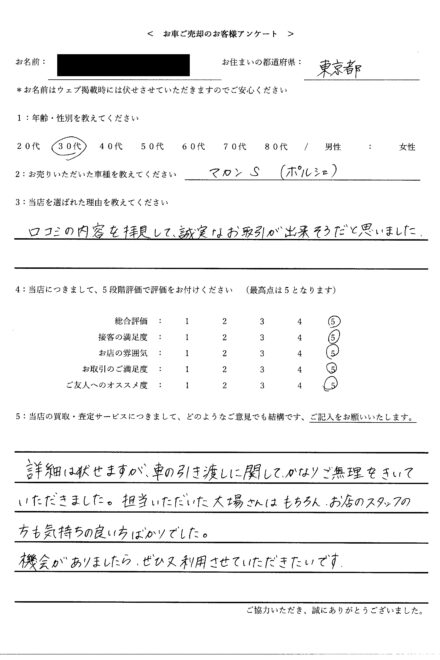 ＜ お車ご売却のお客様アンケート ＞
お名前： お住まいの都道府県： 東京都
＊お名前はウェブ掲載時には伏せさせていただきますのでご安心ください
1：年齢・性別を教えてください
20代 30代 40代 50代 60代 70代 80代 / 男性 ： 女性
2：お売りいただいた車種を教えてください マカン S (ポルシェ)
3：当店を選ばれた理由を教えてください
口コミの内容を拝見して、誠実なお取引が出来そうだと思いました.
4：当店につきまして、5段階評価で評価をお付けください （最高点は5となります）
総合評価 ： 1 2 3 4 5
接客の満足度 ： 1 2 3 4 5
お店の雰囲気 ： 1 2 3 4 5
お取引のご満足度 ： 1 2 3 4 5
ご友人へのオススメ度 ： 1 2 3 4 5
5：当店の買取・査定サービスにつきまして、どのようなご意見でも結構です、ご記入をお願いいたします。
詳細は伏せますが、車の引き渡しに関して、かなりご無理をきいて
いただきました。担当いただいた大場さんはもちろん、お店のスタッフの
方も気持ちの良い方ばかりでした。
機会がありましたら、ぜひ又利用させていただきたいです.
ご協力いただき、誠にありがとうございました。